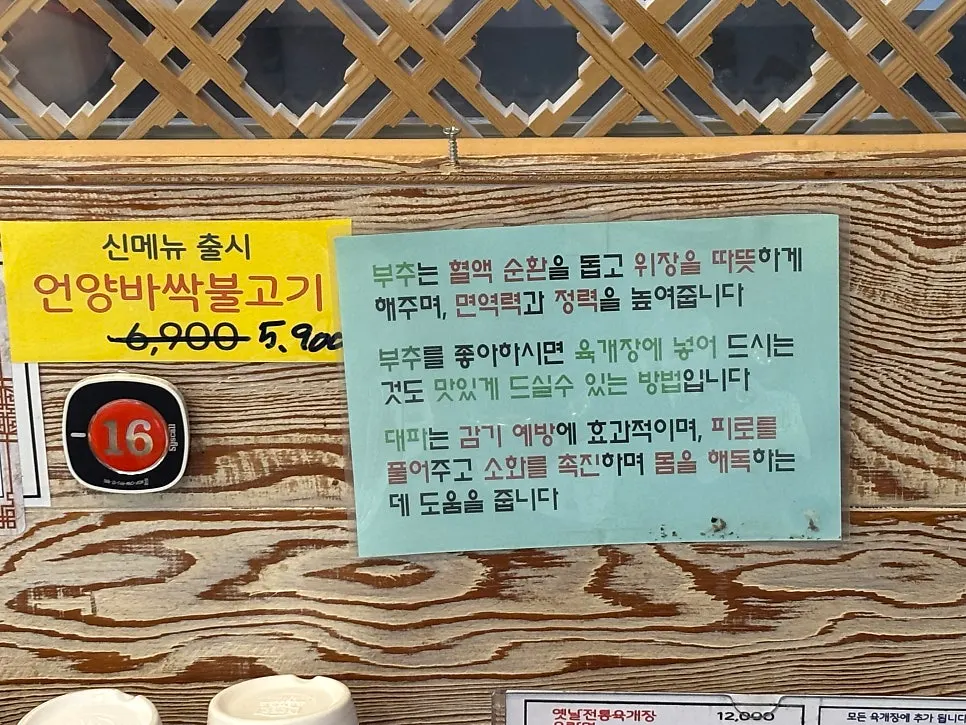 신메뉴 출시
언양바싹불고기
6,900 5,900
16
Syscall
부추는 혈액 순환을 돕고 위장을 따뜻하게
해주며, 면역력과 정력을 높여줍니다
부추를 좋아하시면 육개장에 넣어 드시는
것도 맛있게 드실수 있는 방법입니다
대파는 감기 예방에 효과적이며, 피로를
풀어주고 소화를 촉진하며 몸을 해독하는
데 도움을 줍니다
옛날전통육개장 12,000
모든 육개장에 추가 됩니